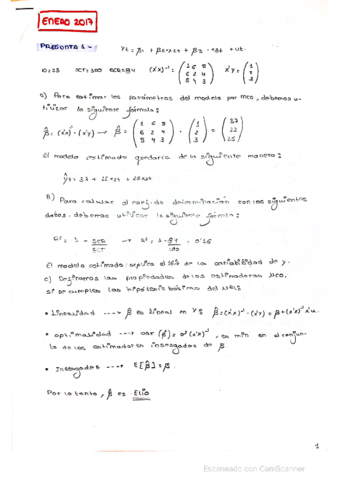 ENERO 2017
PREGUNTA 1.-   Yt = β1 + β2·x2t + β3·x3t + ut.
n=23   SCT=100   SCR=84   (x'x)⁻¹ = (1 6 8 / 6 2 4 / 8 4 3)   x'Y = (1 / 2 / 3)
a) Para estimar los parámetros del modelo por MCO, debemos u-
tilizar la siguiente fórmula:
β̂ = (x'x)⁻¹ · (x'y) → β̂ = (1 6 8 / 6 2 4 / 8 4 3) · (1 / 2 / 3) = (37 / 22 / 25)
El modelo estimado quedaría de la siguiente manera:
Ŷt = 37 + 22x2t + 25x3t
B) Para calcular el coef. de determinación con los siguientes
datos, debemos utilizar la siguiente fórmula:
R² = 1 - SCR/SCT → R² = 1 - 84/100 = 0'16
El modelo estimado explica el 16% de la variabilidad de y.
c) Definimos las propiedades de los estimadores MCO,
si se cumplen las hipótesis básicas del MRL:
• Linealidad ---→ β̂ es lineal en Y: β̂ = (x'x)⁻¹·(x'y) = β + (x'x)⁻¹x'u.
• optimalidad ---→ var(β̂) = σ²(x'x)⁻¹, es mín en el conjun-
to de los estimadores insesgados de β.
• Insesgadez ---→ E[β̂] = β.
Por lo tanto, β̂ es ELIO
1
Escaneado con CamScanner